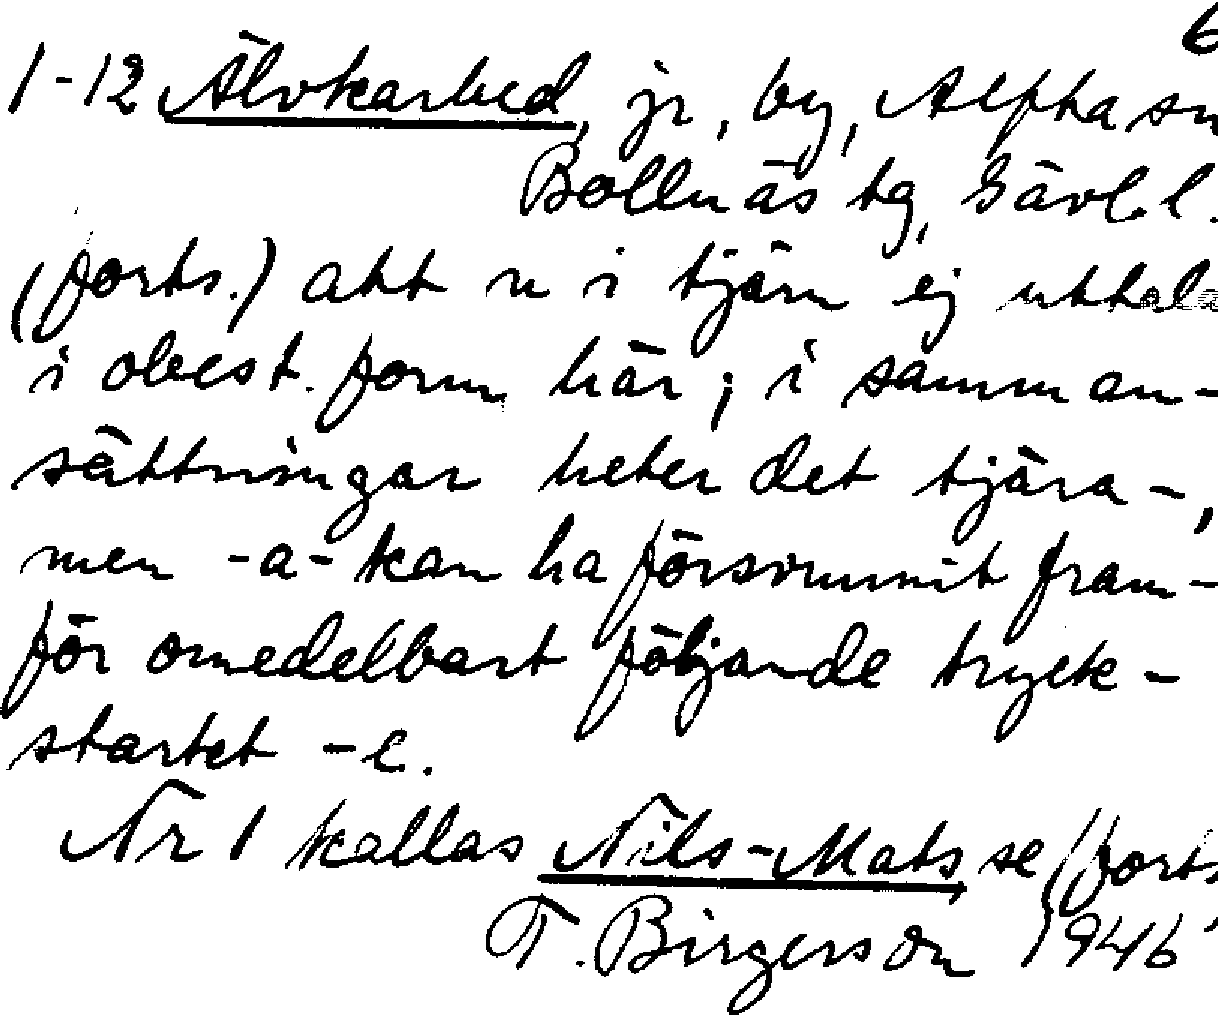 6
1-12 Älvkarhed, jr, by, Alfta sn
Bollnäs tg, Gävl.l.
(forts.) att n i tjärn ej uttala
i obest. form här; i samman-
sättningar heter det tjära-,
men -a- kan ha försvunnit fram-
för omedelbart följande tryck-
startet -e.
Nr 1 kallas Nils-Mats, se (forts
T. Birgerson 1946